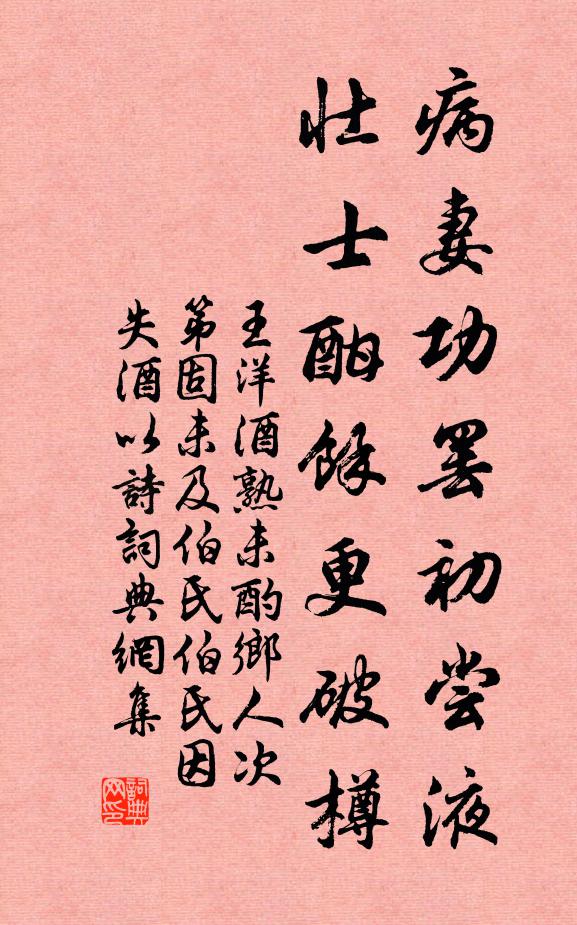 病妻功罢初尝液
壮士酣餘更破樽
王洋酒熟未酌鄉人次
第固未及伯氏伯氏因
失酒以詩詞典網集
詞典
网印